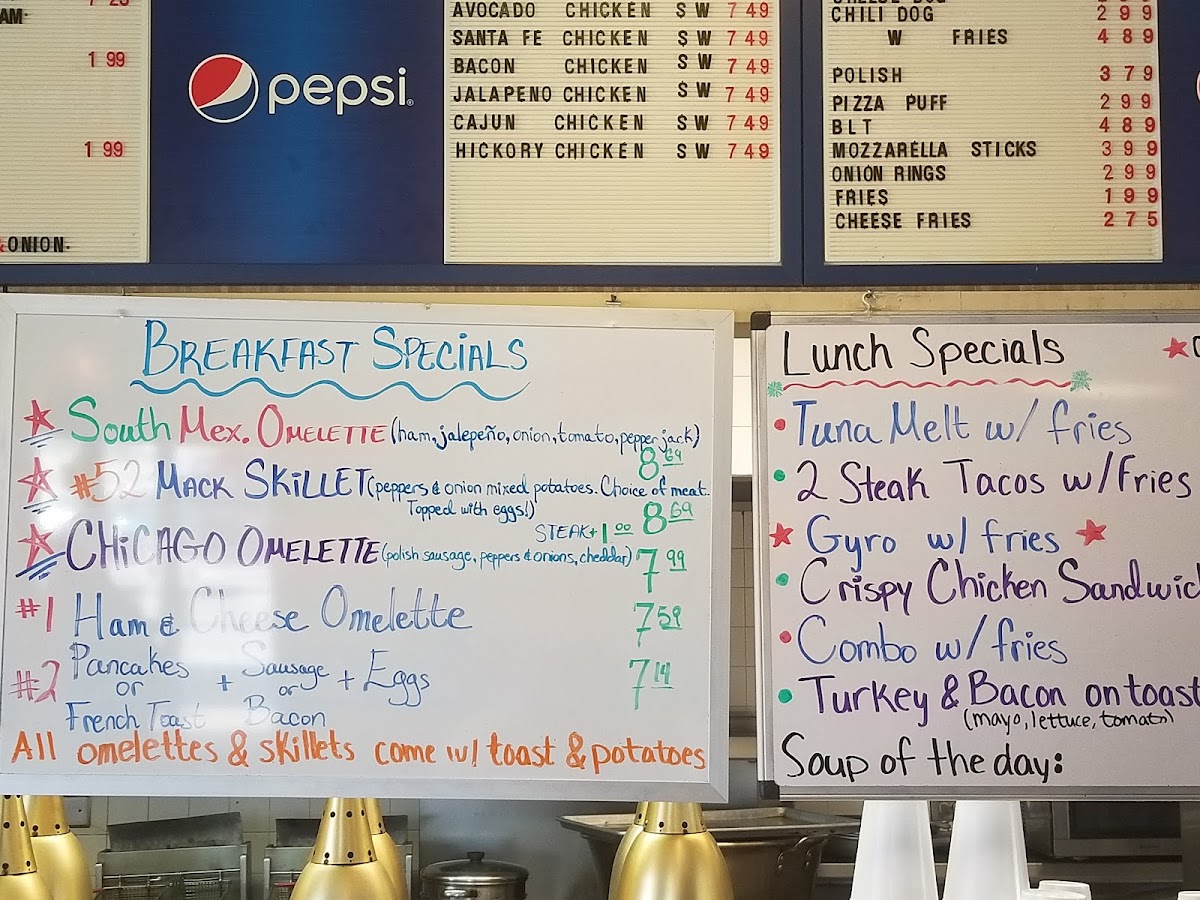 AM-
1 99
1 99
&ONION-
pepsi
AVOCADO CHICKEN SW 7 49
SANTA FE CHICKEN SW 7 49
BACON CHICKEN SW 7 49
JALAPENO CHICKEN SW 7 49
CAJUN CHICKEN SW 7 49
HICKORY CHICKEN SW 7 49
CHILI DOG 2 99
W FRIES 4 89
POLISH 3 79
PIZZA PUFF 2 99
BLT 4 89
MOZZARELLA STICKS 3 99
ONION RINGS 2 99
FRIES 1 99
CHEESE FRIES 2 75
BREAKFAST SPECIALS
South Mex. OMELETTE (ham, jalepeño, onion, tomato, pepper jack)
8 69
#52 MACK SKILLET (peppers & onion mixed potatoes. Choice of meat.
Topped with eggs!)
STEAK+1 00 8 69
CHICAGO OMELETTE (polish sausage, peppers & onions, cheddar) 7 99
#1 Ham & Cheese Omelette 7 59
#2 Pancakes or French Toast + Sausage or Bacon + Eggs 7 14
All omelettes & skillets come w/ toast & potatoes
Lunch Specials
Tuna Melt w/ fries
2 Steak Tacos w/Fries
Gyro w/ fries
Crispy Chicken Sandwic
Combo w/ fries
Turkey & Bacon on toast
(mayo, lettuce, tomato)
Soup of the day: